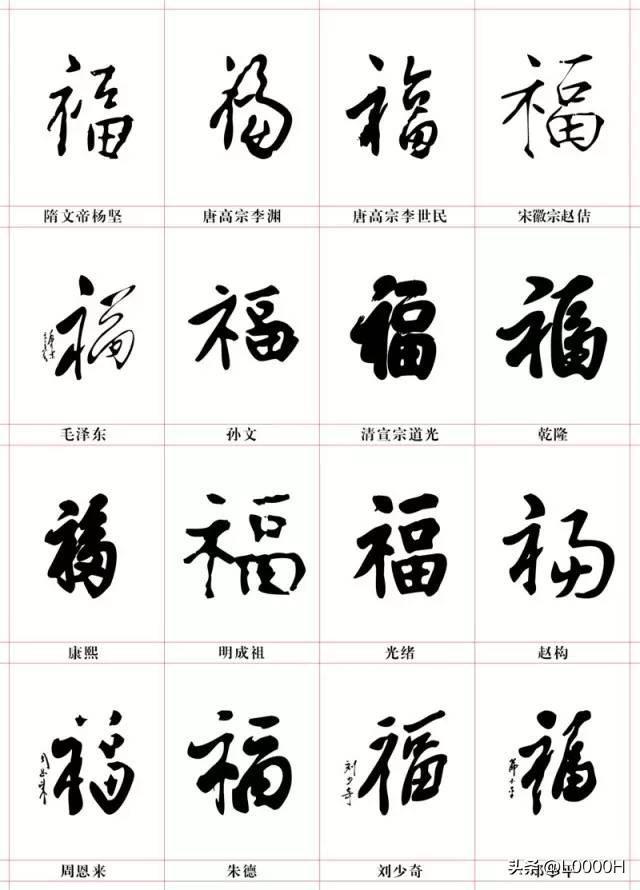 福 福 福 福
隋文帝杨坚 唐高宗李渊 唐高宗李世民 宋徽宗赵佶
福 福 福 福
毛泽东 孙文 清宣宗道光 乾隆
福 福 福 福
康熙 明成祖 光绪 赵构
福 福 福 福
刘少奇
周恩来 朱德 刘少奇
头条@L0000H